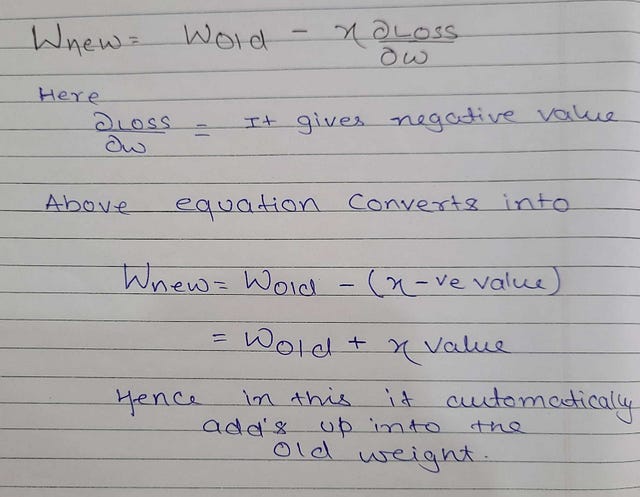 Wnew = Wold - η ∂Loss/∂w
Here
∂Loss/∂w = It gives negative value
Above equation converts into
Wnew = Wold - (η -ve value)
= Wold + η value
Hence in this it automaticaly
add's up into the
old weight.